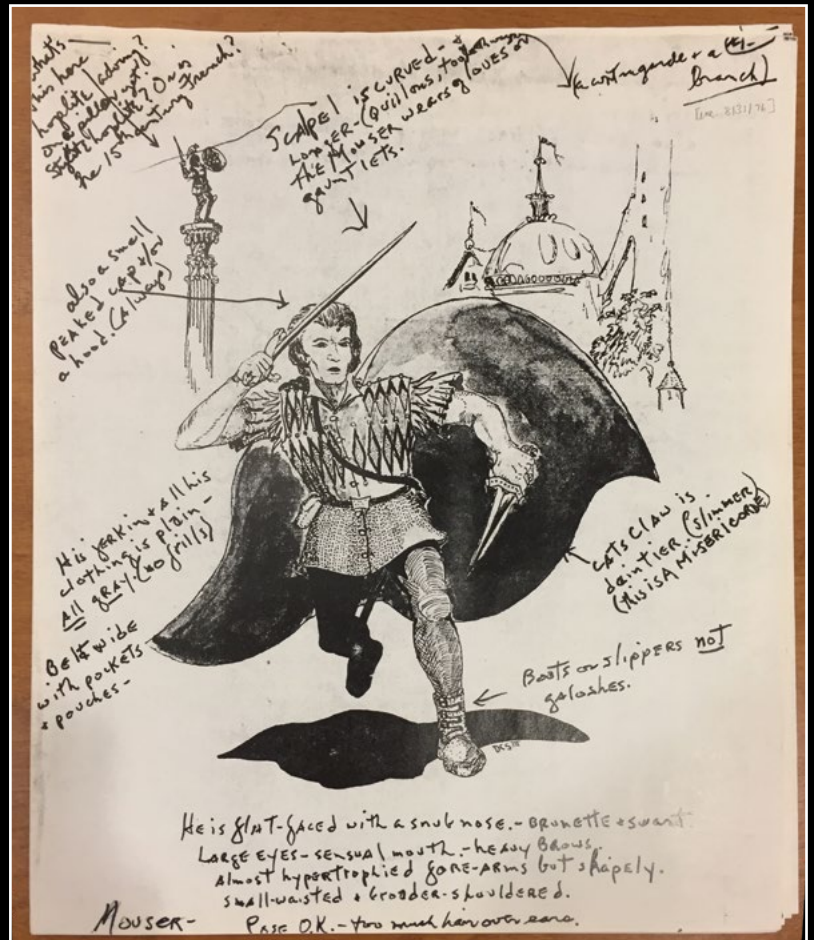 what's
this here
hoplite doing?
on a pillar?
hoplite? Or is
he 15th century French?
SCAPEL IS CURVED-+
LONGER-(QUILLONS, too
the MOUSER WEARS gloves or
gauntlets.
(a contragarde + a
Branch)
also a small
PEAKED cap +/or
a hood. (always)
His jerkin + all his
clothing is plain-
All gray. (no frills)
Belt wide
with pockets
+ pouches-
CATS CLAW is
daintier. (slimmer)
(this is A MISERICORDE)
Boots or slippers not
galoshes.
DCSIII
He is flat-faced with a snub nose.- BRUNETTE + swart
LARGE Eyes- sensual mouth.- heavy Brows.
almost hypertrophied fore-arms but shapely.
small-waisted + broader-shouldered.
MOUSER- Pose O.K.- too much hair over ears.